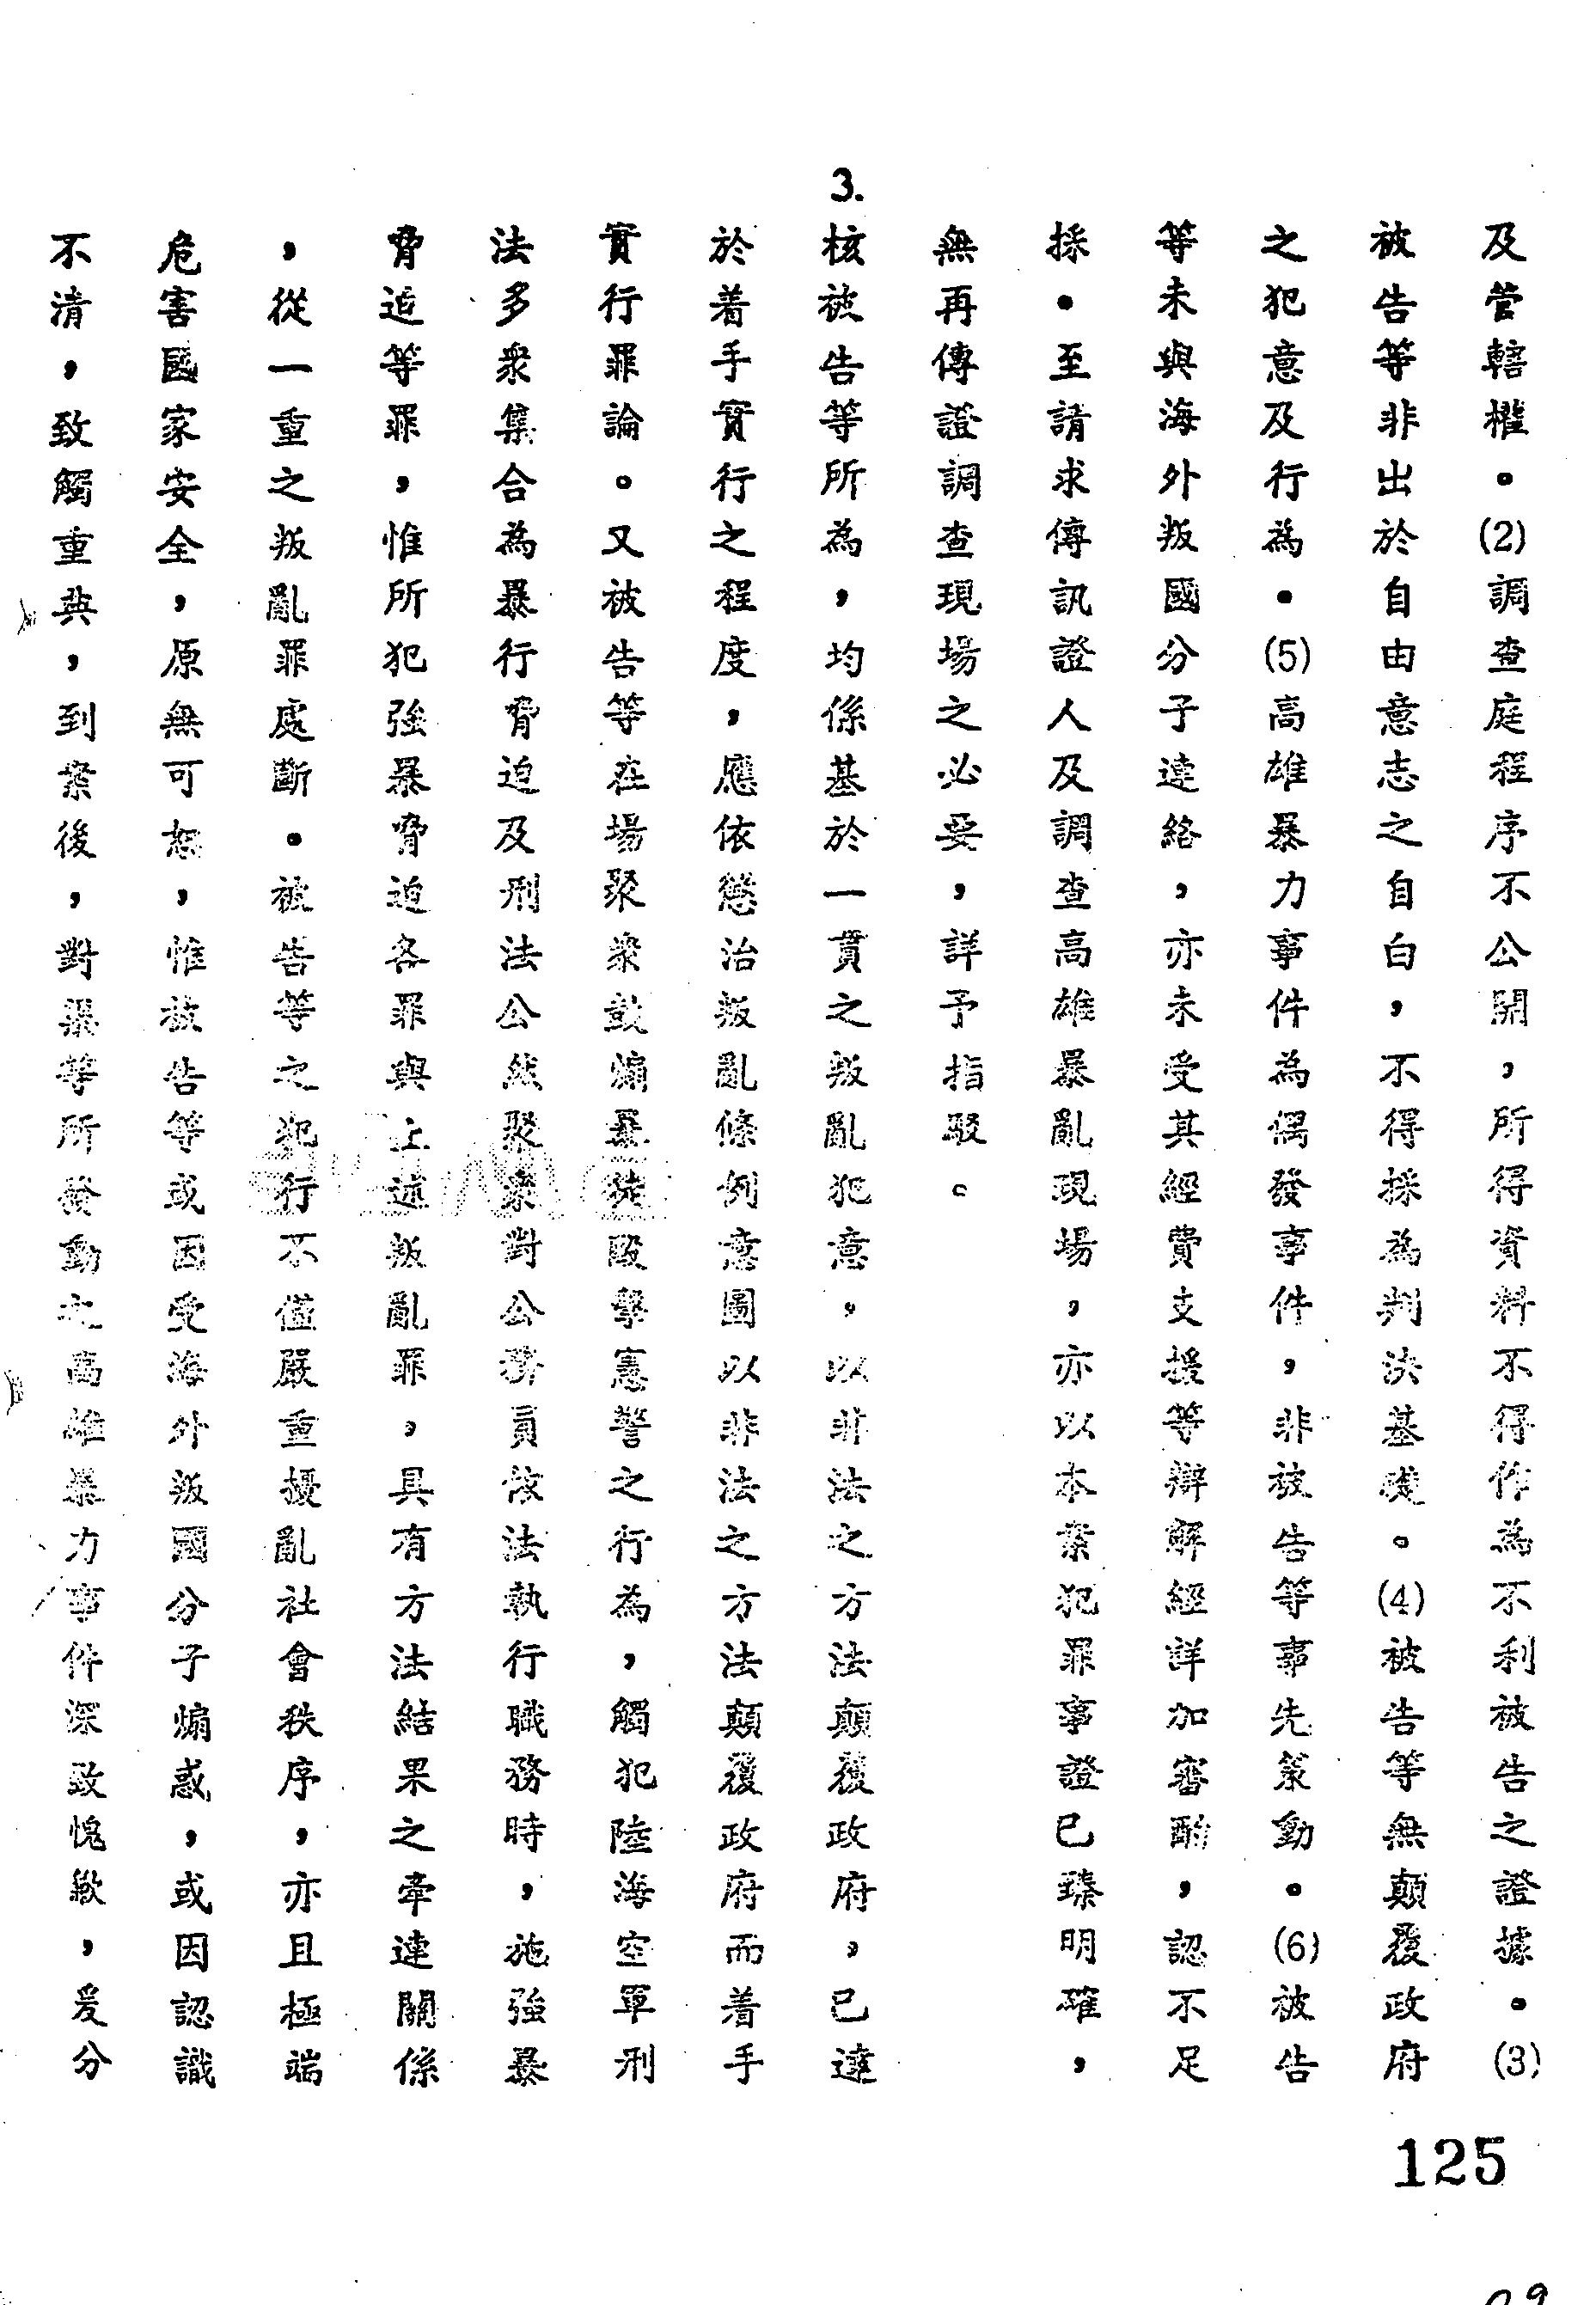 及管轄權。(2)調查庭程序不公開，所得資料不得作為不利被告之證據。(3)
被告等非出於自由意志之自白，不得採為判決基礎。(4)被告等無顛覆政府
之犯意及行為。(5)高雄暴力事件為偶發事件，非被告等事先策動。(6)被告
等未與海外叛國分子連絡，亦未受其經費支援等辯解經詳加審酌，認不足
採。至請求傳訊證人及調查高雄暴亂現場，亦以本案犯罪事證已臻明確，
無再傳證調查現場之必要，詳予指駁。
3.核被告等所為，均係基於一貫之叛亂犯意，以非法之方法顛覆政府，已達
於着手實行之程度，應依懲治叛亂條例意圖以非法之方法顛覆政府而着手
實行罪論。又被告等在場聚衆鼓煽暴徒毆擊憲警之行為，觸犯陸海空軍刑
法多衆集合為暴行脅迫及刑法公然聚衆對公務員依法執行職務時，施強暴
脅迫等罪，惟所犯強暴脅迫各罪與上述叛亂罪，具有方法結果之牽連關係
，從一重之叛亂罪處斷。被告等之犯行不僅嚴重擾亂社會秩序，亦且極端
危害國家安全，原無可恕，惟被告等或因受海外叛國分子煽惑，或因認識
不清，致觸重典，到案後，對渠等所發動之高雄暴力事件深致愧歉，爰分
125